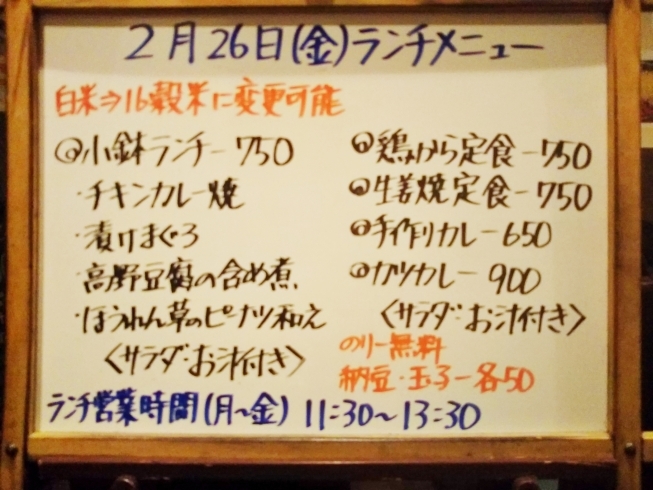 2月26日(金)ランチメニュー
白米⇒16穀米に変更可能
◎小鉢ランチー750
・チキンカレー焼
・漬けまぐろ
・高野豆腐の含め煮
・ほうれん草のピーナツ和え
〈サラダ・お汁付き〉
◎鶏から定食ー750
◎生姜焼定食ー750
◎手作りカレー650
◎カツカレー900
〈サラダ・お汁付き〉
のりー無料
納豆・玉子ー各50
ランチ営業時間(月〜金) 11:30〜13:30